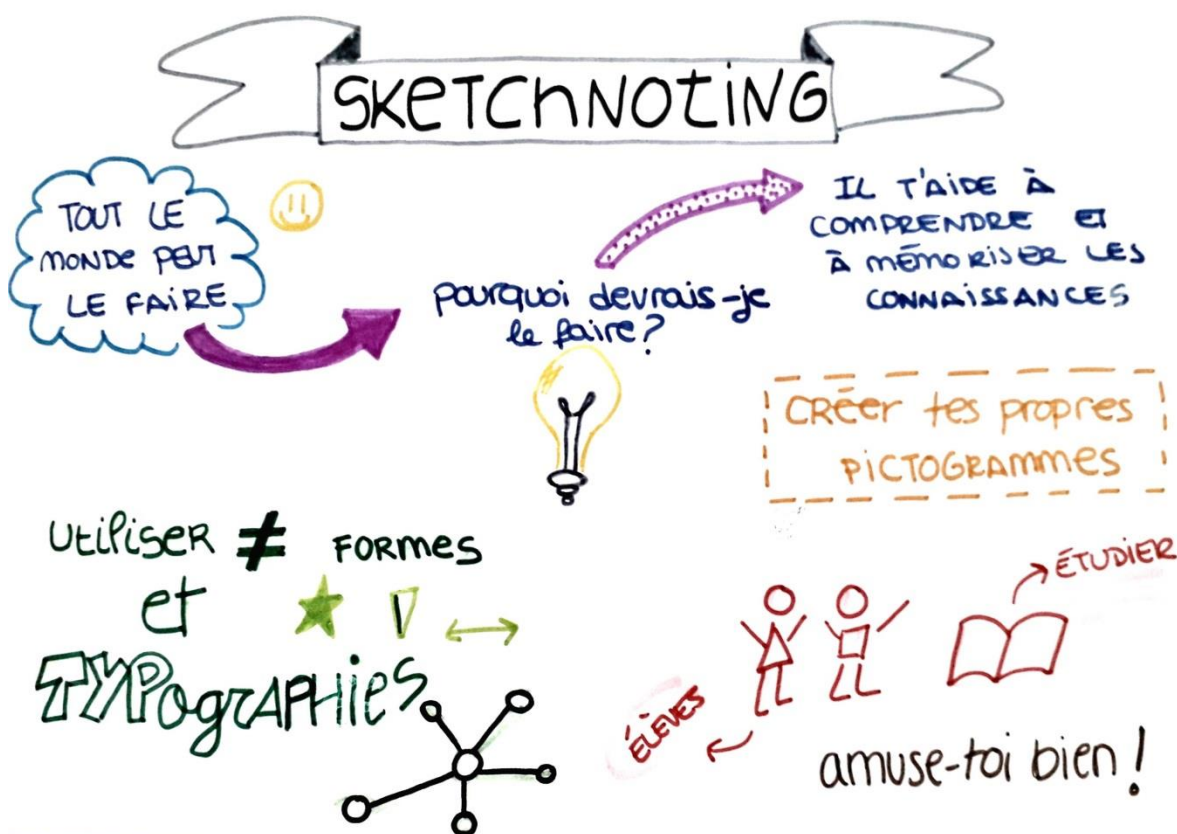 SKETCHNOTING
TOUT LE
MONDE PEUT
LE FAIRE
pourquoi devrais-je
le faire?
IL T'AIDE À
COMPRENDRE ET
À MÉMORISER LES
CONNAISSANCES
CRÉER tes propres
PICTOGRAMMES
UTILISER ≠ FORMES
et
TYPOGRAPHIES
ÉTUDIER
ÉLÈVES
amuse-toi bien!